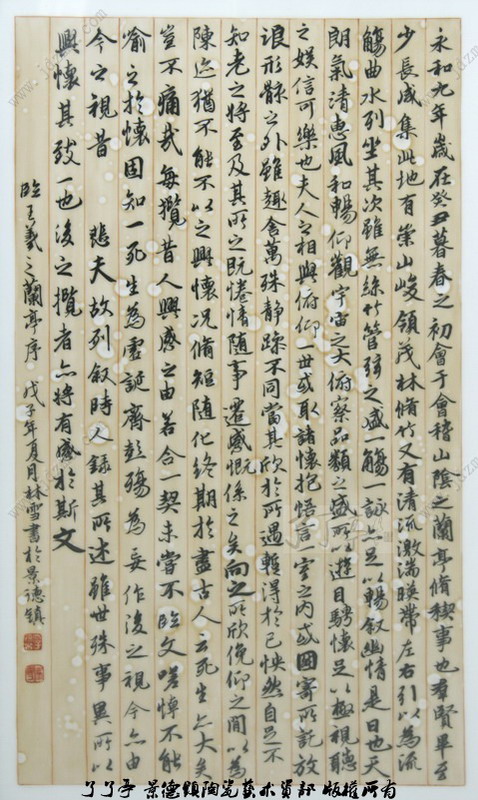 永和九年歲在癸丑暮春之初會于會稽山陰之蘭亭脩稧事也羣賢畢至
少長咸集此地有崇山峻領茂林脩竹又有清流激湍暎帶左右引以為流
觴曲水列坐其次雖無絲竹管弦之盛一觴一詠亦足以暢叙幽情是日也天
朗氣清惠風和暢仰觀宇宙之大俯察品類之盛所以遊目騁懷足以極視聽
之娛信可樂也夫人之相與俯仰一世或取諸懷抱悟言一室之內或因寄所託放
浪形骸之外雖趣舍萬殊靜躁不同當其欣於所遇暫得於己怏然自足不
知老之將至及其所之既惓情隨事遷感慨係之矣向之所欣俛仰之間以為
陳迹猶不能不以之興懷況脩短隨化終期於盡古人云死生亦大矣
豈不痛哉每攬昔人興感之由若合一契未嘗不臨文嗟悼不能
喻之於懷固知一死生為虛誕齊彭殤為妄作後之視今亦由
今之視昔 悲夫故列叙時人錄其所述雖世殊事異所以
興懷其致一也後之攬者亦將有感於斯文
臨王羲之蘭亭序 戊子年夏月林雪書於景德鎮
了了亭 景德鎮陶瓷藝术資部 版權所有